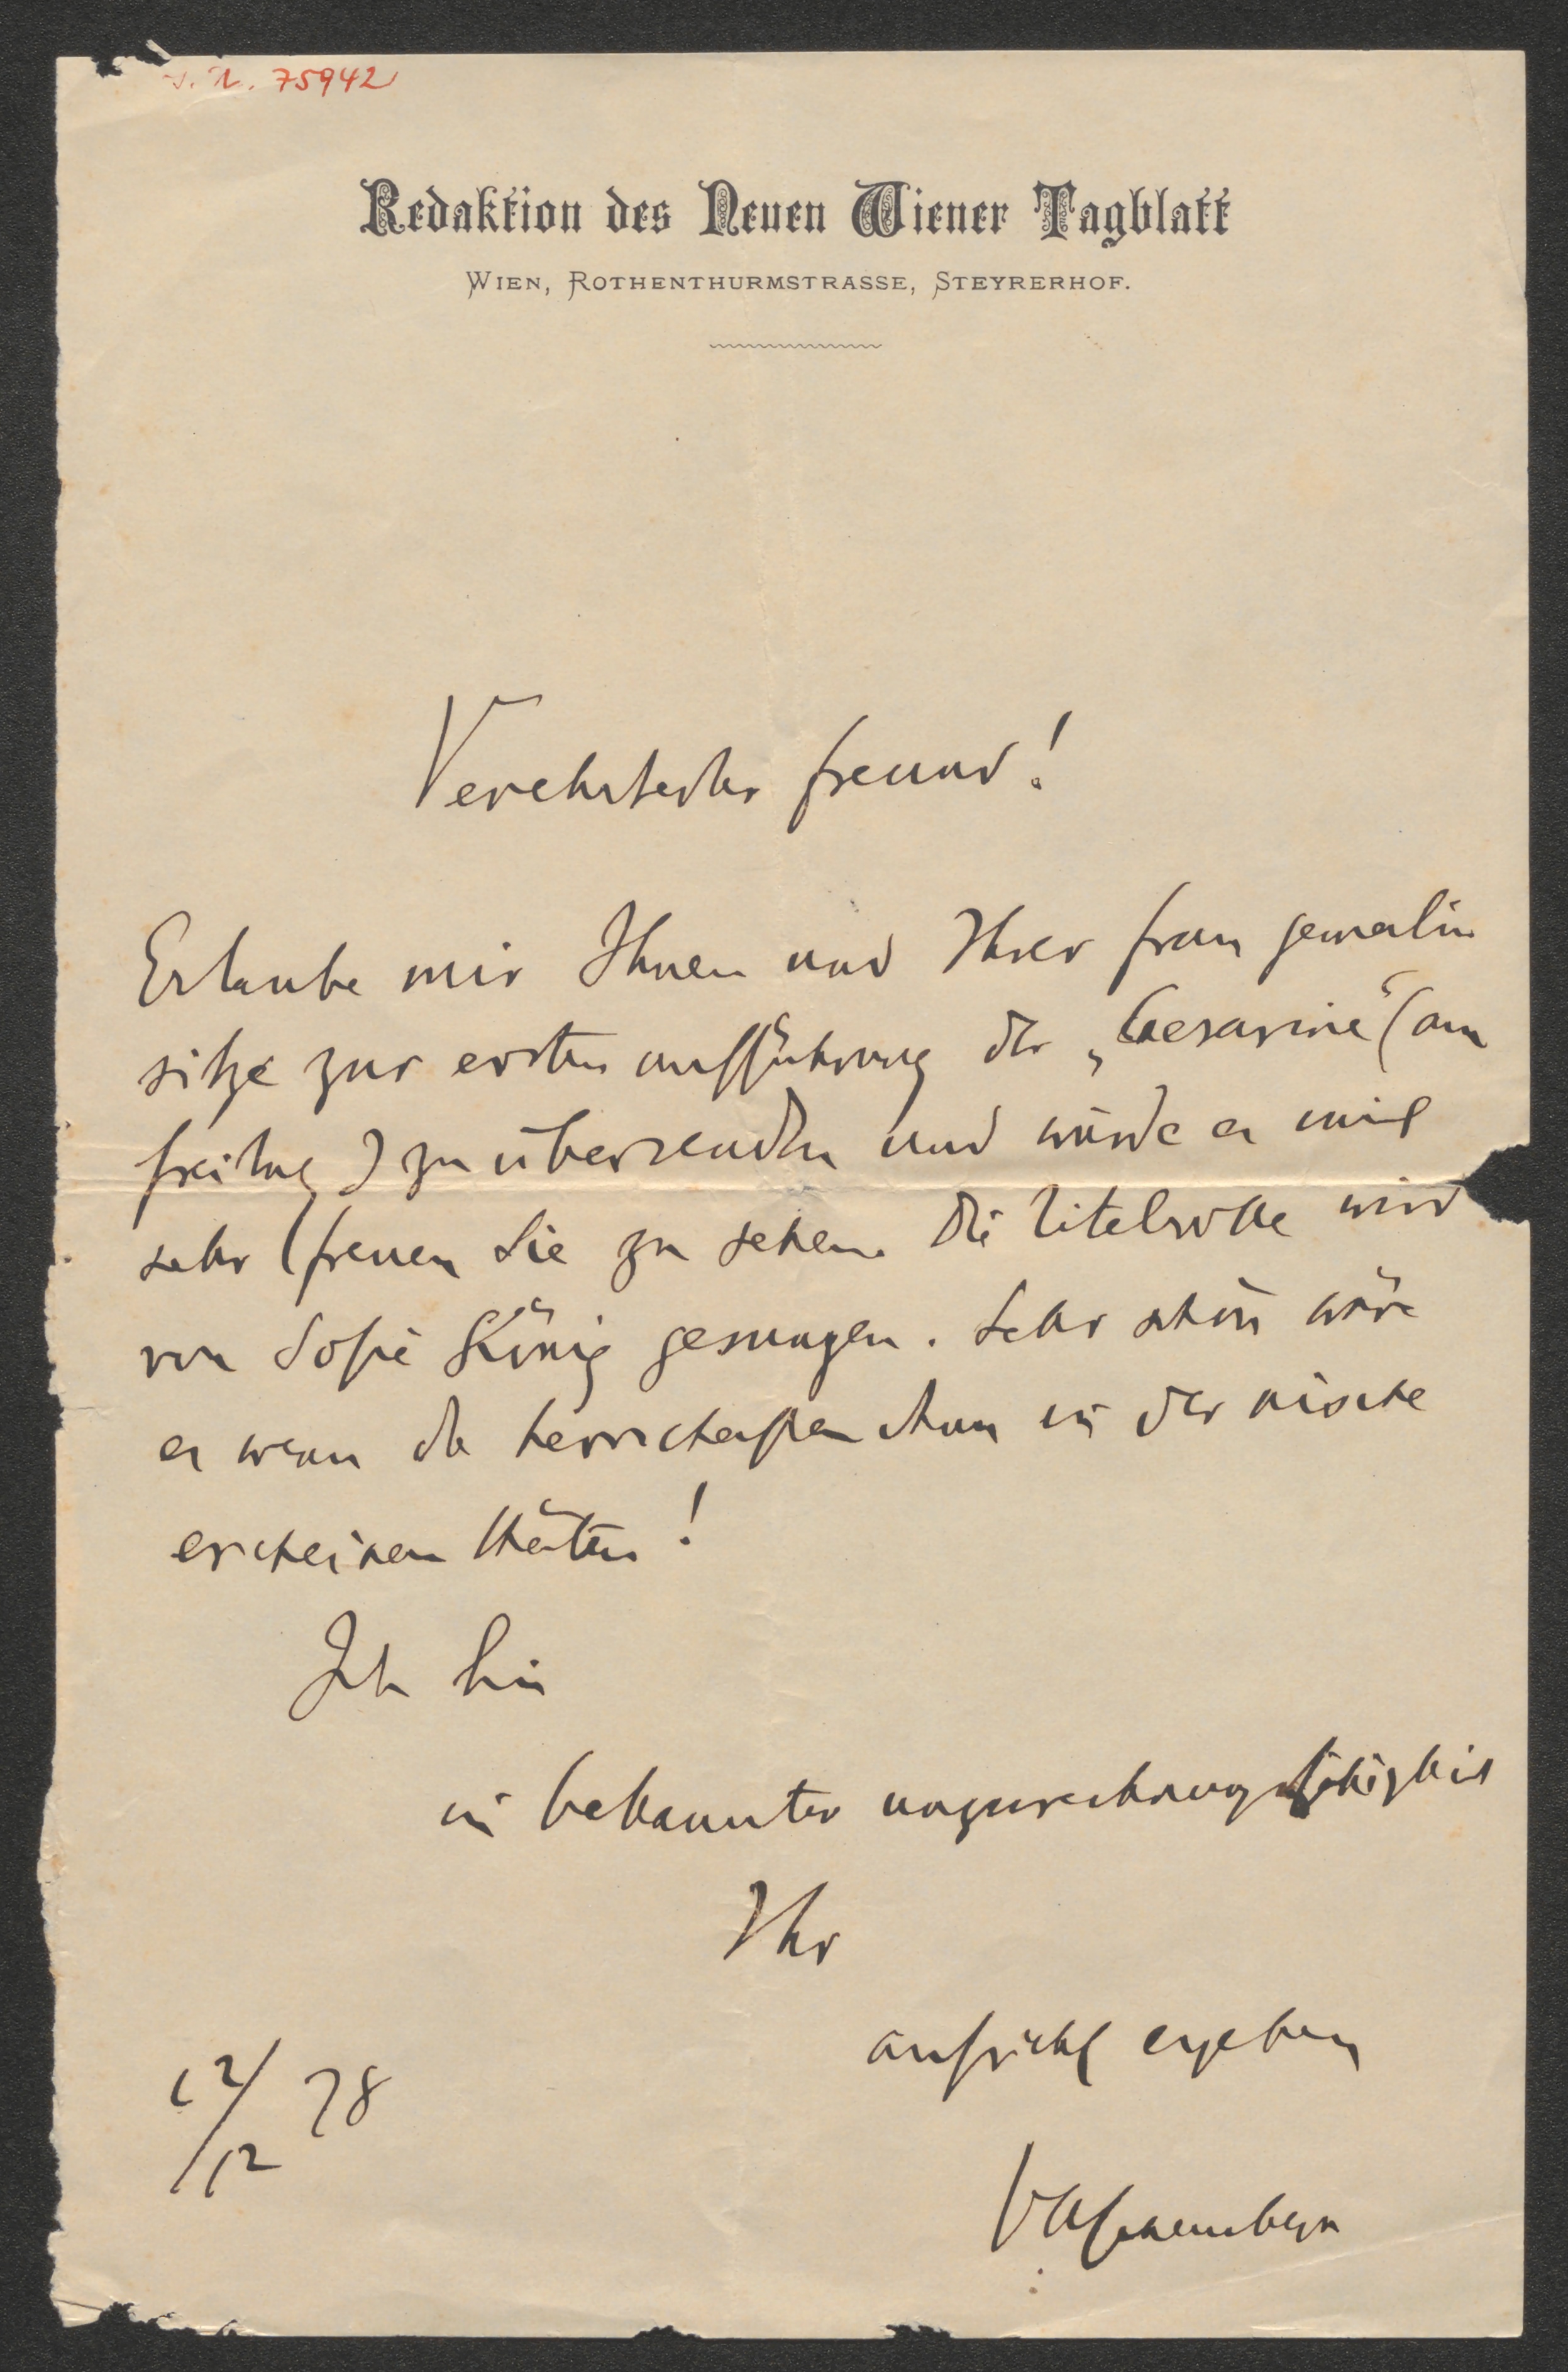 J. N. 75942
Redaktion des Neuen Wiener Tagblatt
WIEN, ROTHENTHURMSTRASSE, STEYRERHOF.
Verehrtester freund!
Erlaube mir Ihnen und Ihrer frau gemalin
sitze zur ersten aufführung der „Caesarine“ (am
freitag) zu übersenden und würde es mich
sehr freuen Sie zu sehen. Die titelrolle wird
von Sofie König gesungen. Sehr schön wäre
es wenn die herrschaften schon in der nische
erscheinen thäten!
Ich bin
in bekannter unzurechnungsfähigkeit
Ihr
aufricht ergeben
12/12 78